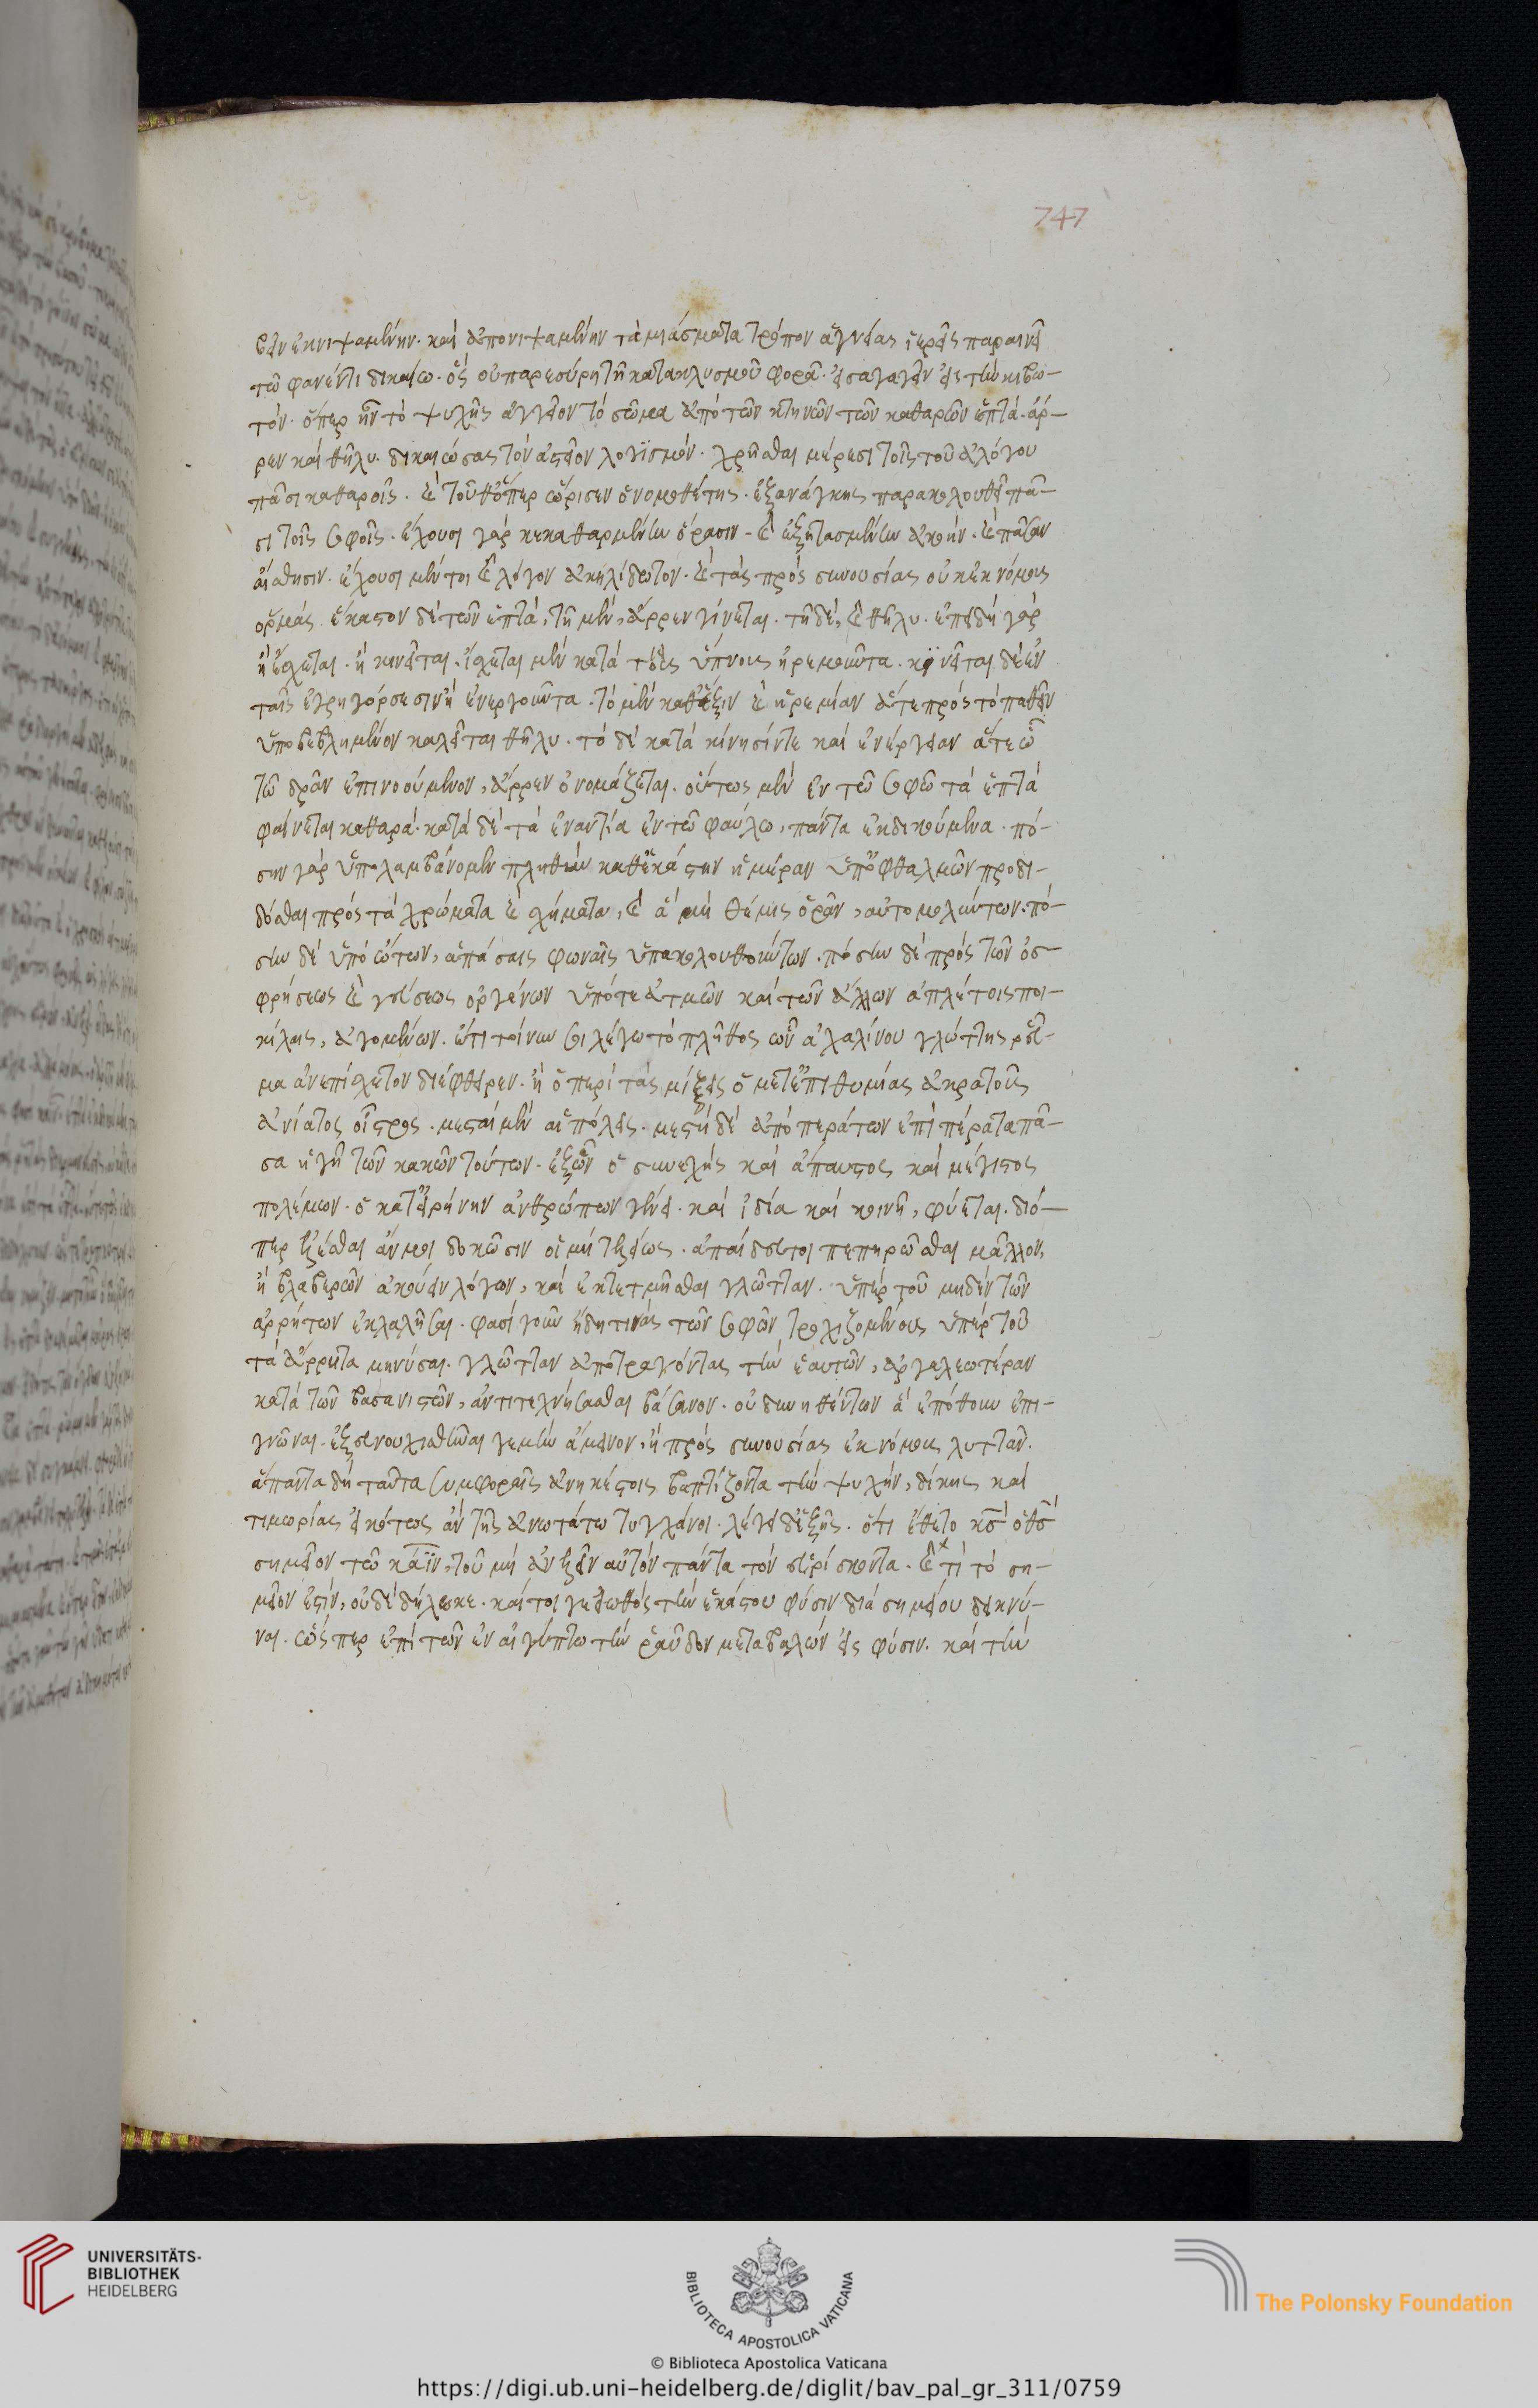 747
σαν ἐκνιψαμένην. καὶ ἀπονιψαμένην τὰ μιάσματα τρόπον ἁγνείας ἱερᾶς παραινεῖ
τῷ φανέντι δικαίῳ. ὃς οὐ παρεσύρη τῇ κατακλυσμοῦ φορᾷ. εἰσαγαγεῖν εἰς τὴν κιβω-
τόν. ὅπερ ἦν τὸ ψυχῆς ἀγγεῖον τὸ σῶμα ἀπὸ τῶν κτηνῶν τῶν καθαρῶν ἑπτὰ. ἄρ-
ρεν καὶ θῆλυ. δικαιώσας τὸν ἀστεῖον λογϊσμόν. χρῆσθαι μέρεσι τοῖς τοῦ ἀλόγου
πᾶσι καθαροῖς. καὶ τοῦθ' ὅπερ ὥρισεν ὁ νομοθέτης. ἐξ ἀνάγκης παρακολουθεῖ πᾶ-
σι τοῖς σοφοῖς. ἔχουσι γὰρ κεκαθαρμένην ὅρασιν. καὶ ἐξητασμένην ἀκοήν. καὶ πᾶσαν
αἴσθησιν. ἔχουσι μέντοι καὶ λόγον ἀκηλίδωτον. καὶ τὰς πρὸς συνουσίας οὐκ ἐκνόμους
ὁρμάς. ἕκαστον δὲ τῶν ἑπτὰ, τῇ μὲν, ἄρρεν γίνεται. τῇ δὲ, καὶ θῆλυ. ἐπειδὴ γὰρ
ἢ ἴσχεται. ἢ κινεῖται. ἴσχεται μὲν κατὰ τοὺς ὕπνους ἠρεμοῦντα. κϊνεῖται δὲ ἐν
ταῖς ἐγρηγόρσεσιν ἢ ἐνεργοῦντα. τὸ μὲν καθ' ἕξιν καὶ ἠρεμίαν ἅτε πρὸς τὸ παθεῖν
ὑποβεβλημένον καλεῖται θῆλυ. τὸ δὲ κατὰ κίνησίν τε καὶ ἐνέργειαν ἅτε ὢν
τῷ δρᾶν ἐπινοούμενον, ἄρρεν ὀνομάζεται. οὕτως μὲν ἐν τῷ σοφῷ τὰ ἑπτὰ
φαίνεται καθαρά. κατὰ δὲ τὰ ἐναντία ἐν τῷ φαύλῳ, πάντα ἐκδικούμενα. πό-
σην γὰρ ὑπολαμβάνομεν πληθὺν καθ' ἑκάστην ἡμέραν ὑπ' ὀφθαλμῶν προδι-
δόσθαι πρὸς τὰ χρώματα καὶ σχήματα, καὶ ἃ μὴ θέμις ὁρᾶν, αὐτομολούντων. πό-
σην δὲ ὑπὸ ὤτων, ἁπάσαις φωναῖς ὑπακολουθούντων. πόσην δὲ πρὸς τῶν ὀσ-
φρήσεως καὶ γεύσεως ὀργάνων ὑπό τε ἀτμῶν καὶ τῶν ἄλλων ἀπλέτοις ποι-
κίλοις, ἀγομένων. ἔτι τοίνυν σοι λέγω τὸ πλῆθος ὧν ἀχαλίνου γλώττης ῥεῦ-
μα ἀνεπίσχετον διέφθειρεν. ἢ ὁ περὶ τὰς μίξεις ὁ μετ' ἐπιθυμίας ἀκρατοῦς
ἀνίατος οἶστρος. μεσταὶ μὲν αἱ πόλεις. μεστὴ δὲ ἀπὸ περάτων ἐπὶ πέρατα πᾶ-
σα ἡ γῆ τῶν κακῶν τούτων. ἐξ ὧν ὁ συνεχὴς καὶ ἄπαυστος καὶ μέγιστος
πολέμων. ὁ κατ' εἰρήνην ἀνθρώπων γένει. καὶ ἰδίᾳ καὶ κοινῇ, φύεται. διό-
περ ἑλέσθαι ἄν μοι δοκῶσιν οἱ μὴ τελείως. ἀπαίδευτοι πεπηρῶσθαι μᾶλλον,
ἢ βλαβερῶν ἀκούειν λόγων, καὶ ἐκτετμῆσθαι γλῶτταν. ὑπὲρ τοῦ μηδὲν τῶν
ἀρρήτων ἐκλαλῆσαι. φασὶ γοῦν ἤδη τινὰς τῶν σοφῶν τροχιζομένους ὑπὲρ τοῦ
τὰ ἄρρητα μηνύσαι. γλῶτταν ἀποτραγόντας τὴν ἑαυτῶν, ἀργαλεωτέραν
κατὰ τῶν βασανιστῶν, ἀντιτεχνήσασθαι βάσανον. οὐ δυνηθέντων ἃ ἐπόθουν ἐπι-
γνῶναι. ἐξευνουχισθῆναί γε μὴν ἄμεινον, ἢ πρὸς συνουσίας ἐκνόμους λυττᾶν.
ἅπαντα δὴ ταῦτα συμφοραῖς ἀνηκέστοις βαπτίζοντα τὴν ψυχὴν, δίκης καὶ
τιμωρίας εἰκότως ἂν τῆς ἀνωτάτω τυγχάνοι. λέγει δ' ἑξῆς. ὅτι ἔθετο κς ὁ θς
σημεῖον τῷ κάϊν, τοῦ μὴ ἀνελεῖν αὐτὸν πάντα τὸν εὑρίσκοντα. καὶ τί τὸ ση-
μεῖον ἐστὶν, οὐ δεδήλωκε. καίτοι γε εἰωθὼς τὴν ἑκάστου φύσιν διὰ σημείου δεικνύ-
ναι. ὥσπερ ἐπὶ τῶν ἐν αἰγύπτῳ τὴν ῥάβδον μεταβαλὼν εἰς φύσιν. καὶ τὴν
UNIVERSITÄTS-
BIBLIOTHEK
HEIDELBERG
BIBLIOTECA APOSTOLICA VATICANA
The Polonsky Foundation
© Biblioteca Apostolica Vaticana
https://digi.ub.uni-heidelberg.de/diglit/bav_pal_gr_311/0759